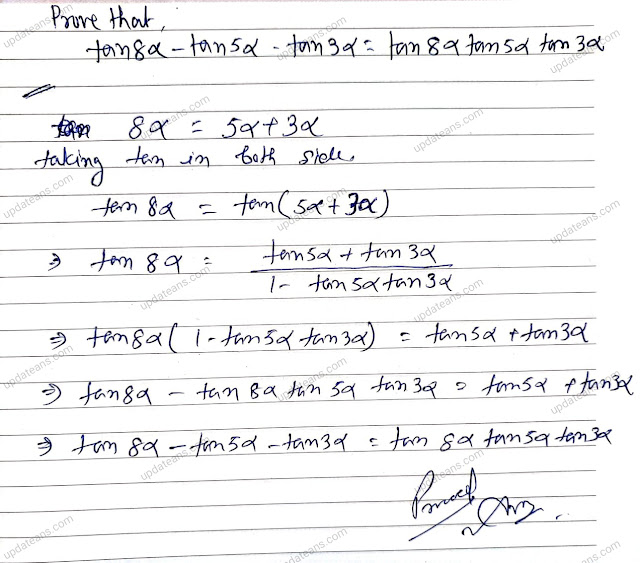 Prove that,
tan8α - tan5α - tan3α = tan8α tan5α tan3α
8α = 5α + 3α
taking tan in both side.
tan8α = tan(5α + 3α)
⇒ tan 8α = tan5α + tan3α
1 - tan5α tan3α
⇒ tan8α (1 - tan5α tan3α) = tan5α + tan3α
⇒ tan8α - tan 8α tan 5α tan 3α = tan5α + tan3α
⇒ tan 8α - tan5α - tan3α = tan 8α tan5α tan3α
Proved
Ans.
updateans.com